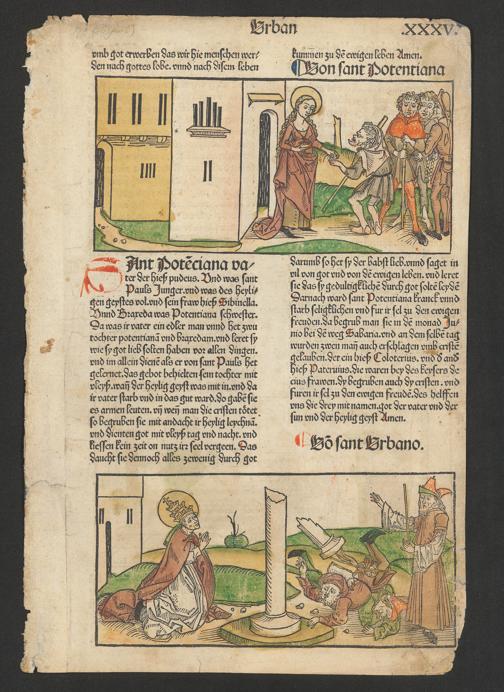 Urban
.XXXV.
vmb got erwerben das wir hie menschen wer-
den nach gottes lobe. vnnd nach disem leben
kummen zu dē ewigen leben Amen.
Uon sant Potentiana
Sant Potēciana va-
ter der hieß pudens. Vnd was sant
Pauls Junger. vnd was des heyli-
gen geystes vol. vnd sein fraw hieß Sibinella.
Vnnd Braxeda was Potentiana schwester.
Da was ir vater ein edler man vnnd het zwu
tochter potentianā vnd braxedam. vnd leret sy
wie sy got lieb solten haben vor allen dingen.
vnd im allein dienē als er von sant Pauls het
gelernet. das gebot behielten sein tochter mit
vleyß. wañ der heylig geyst was mit in. vnd da
ir vater starb vnd in das gut ward. do gabē sie
es armen leuten. vñ weñ man die cristen tötet
so begruben sie mit andacht ir heylig leychnā.
vnd dienten got mit vleyß tag vnd nacht. vnd
liessen kein zeit on nutz irr sel vergeen. Das
daucht sie dennoch alles zewenig durch got
darumb so het sy der babst lieb. vnnd saget in
vil von got vnd von dē ewigen leben. vnd leret
sie das sy gedultigkliche durch got solten leydē
Darnach ward sant Potentiana kranck vnnd
starb seligklichen vnd fur ir sel zu den ewigen
freuden. da begrub man sie in dē monad Ju-
nio bei dē weg Salaria. vnd an dem selbē tag
wurden zwen mañ auch erschlagen vmb cristē
gelauben. der ein hieß Colocerius. vnd d' and
hieß Paternius. die waren bey des keysers de
cius frawen. dy begruben auch dy cristen. vnd
furen ir sel zu den ewigen freudē. des helffen
vns die drey mit namen. got der vater vnd der
sun vnd der heylig geyst Amen.
Uō sant Urbano.